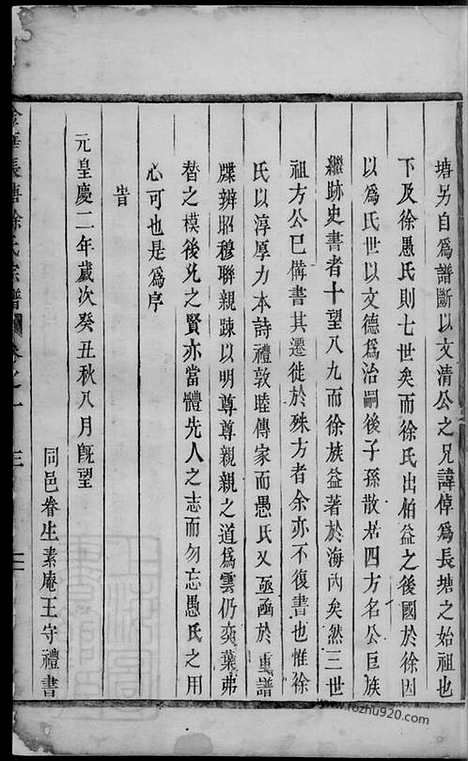 塘另自為譜斷以文清公之兄諱倬為長塘之始祖也
下及徐愚氏則七世矣而徐氏出伯益之後國於徐因
以為氏世以文德為治嗣後子孫散居四方名公巨族
繼跡史書者十望八九而徐族益著於海內矣然三世
祖方公巳備書其遷徙於殊方者余亦不復書也惟徐
氏以淳厚力本詩禮敦睦傳家而愚氏又亟亟於重譜
牒辨昭穆聯親踈以明尊尊親親之道為雲仍奕葉弗
替之模後兄之賢亦當體先人之志而勿忘愚氏之用
心可也是為序
旹
元皇慶二年歲次癸丑秋八月既望
同邑眷生素庵王守禮書
長塘徐氏宗譜
卷之一
三
www.fozhu920.com